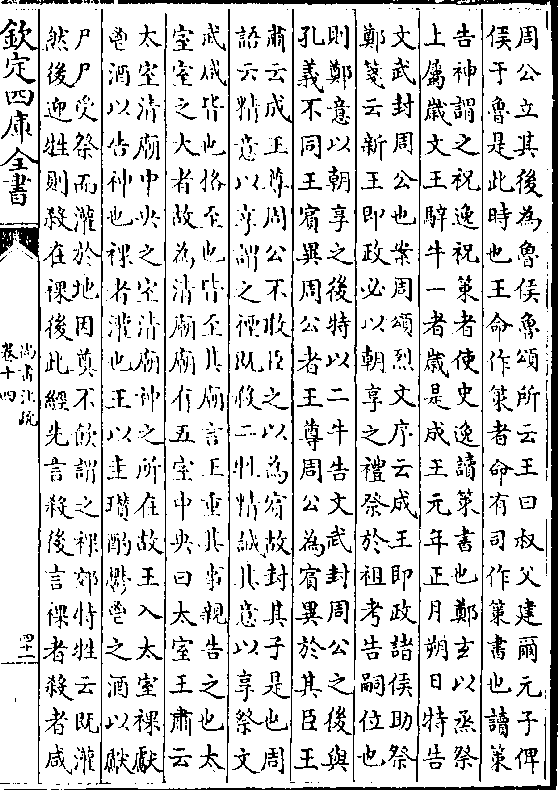 周公立其後為魯侯魯頌所云王曰叔父建爾元子俾
侯于魯是此時也王命作策者命有司作策書也讀策
告神謂之祝逸祝策者使史逸讀策書也鄭玄以烝祭
上屬歲文王騂牛一者歲是成王元年正月朔日特告
文武封周公也案周頌烈文序云成王即政諸侯助祭
鄭箋云新王即政必以朝享之禮祭於祖考告嗣位也
則鄭意以朝享之後特以二牛告文武封周公之後與
孔義不同王賔異周公者王尊周公為賔異於其臣王
肅云成王尊周公不敢臣之以為賔故封其子是也周
語云精意以享謂之禋既殺二牲精誠其意以享祭文
武咸皆也格至也皆至其廟言王重其事親告之也太
室室之大者故為清廟廟有五室中央曰太室王肅云
太室清廟中央之室清廟神之所在故王入太室祼獻
鬯酒以告神也祼者灌也王以圭瓚酌鬱鬯之酒以獻
尸尸受祭而灌於地因奠不飲謂之祼郊特牲云既灌
然後迎牲則殺在祼後此經先言殺後言祼者殺者咸
欽定四庫全書
尚書注疏
卷十四
四十二